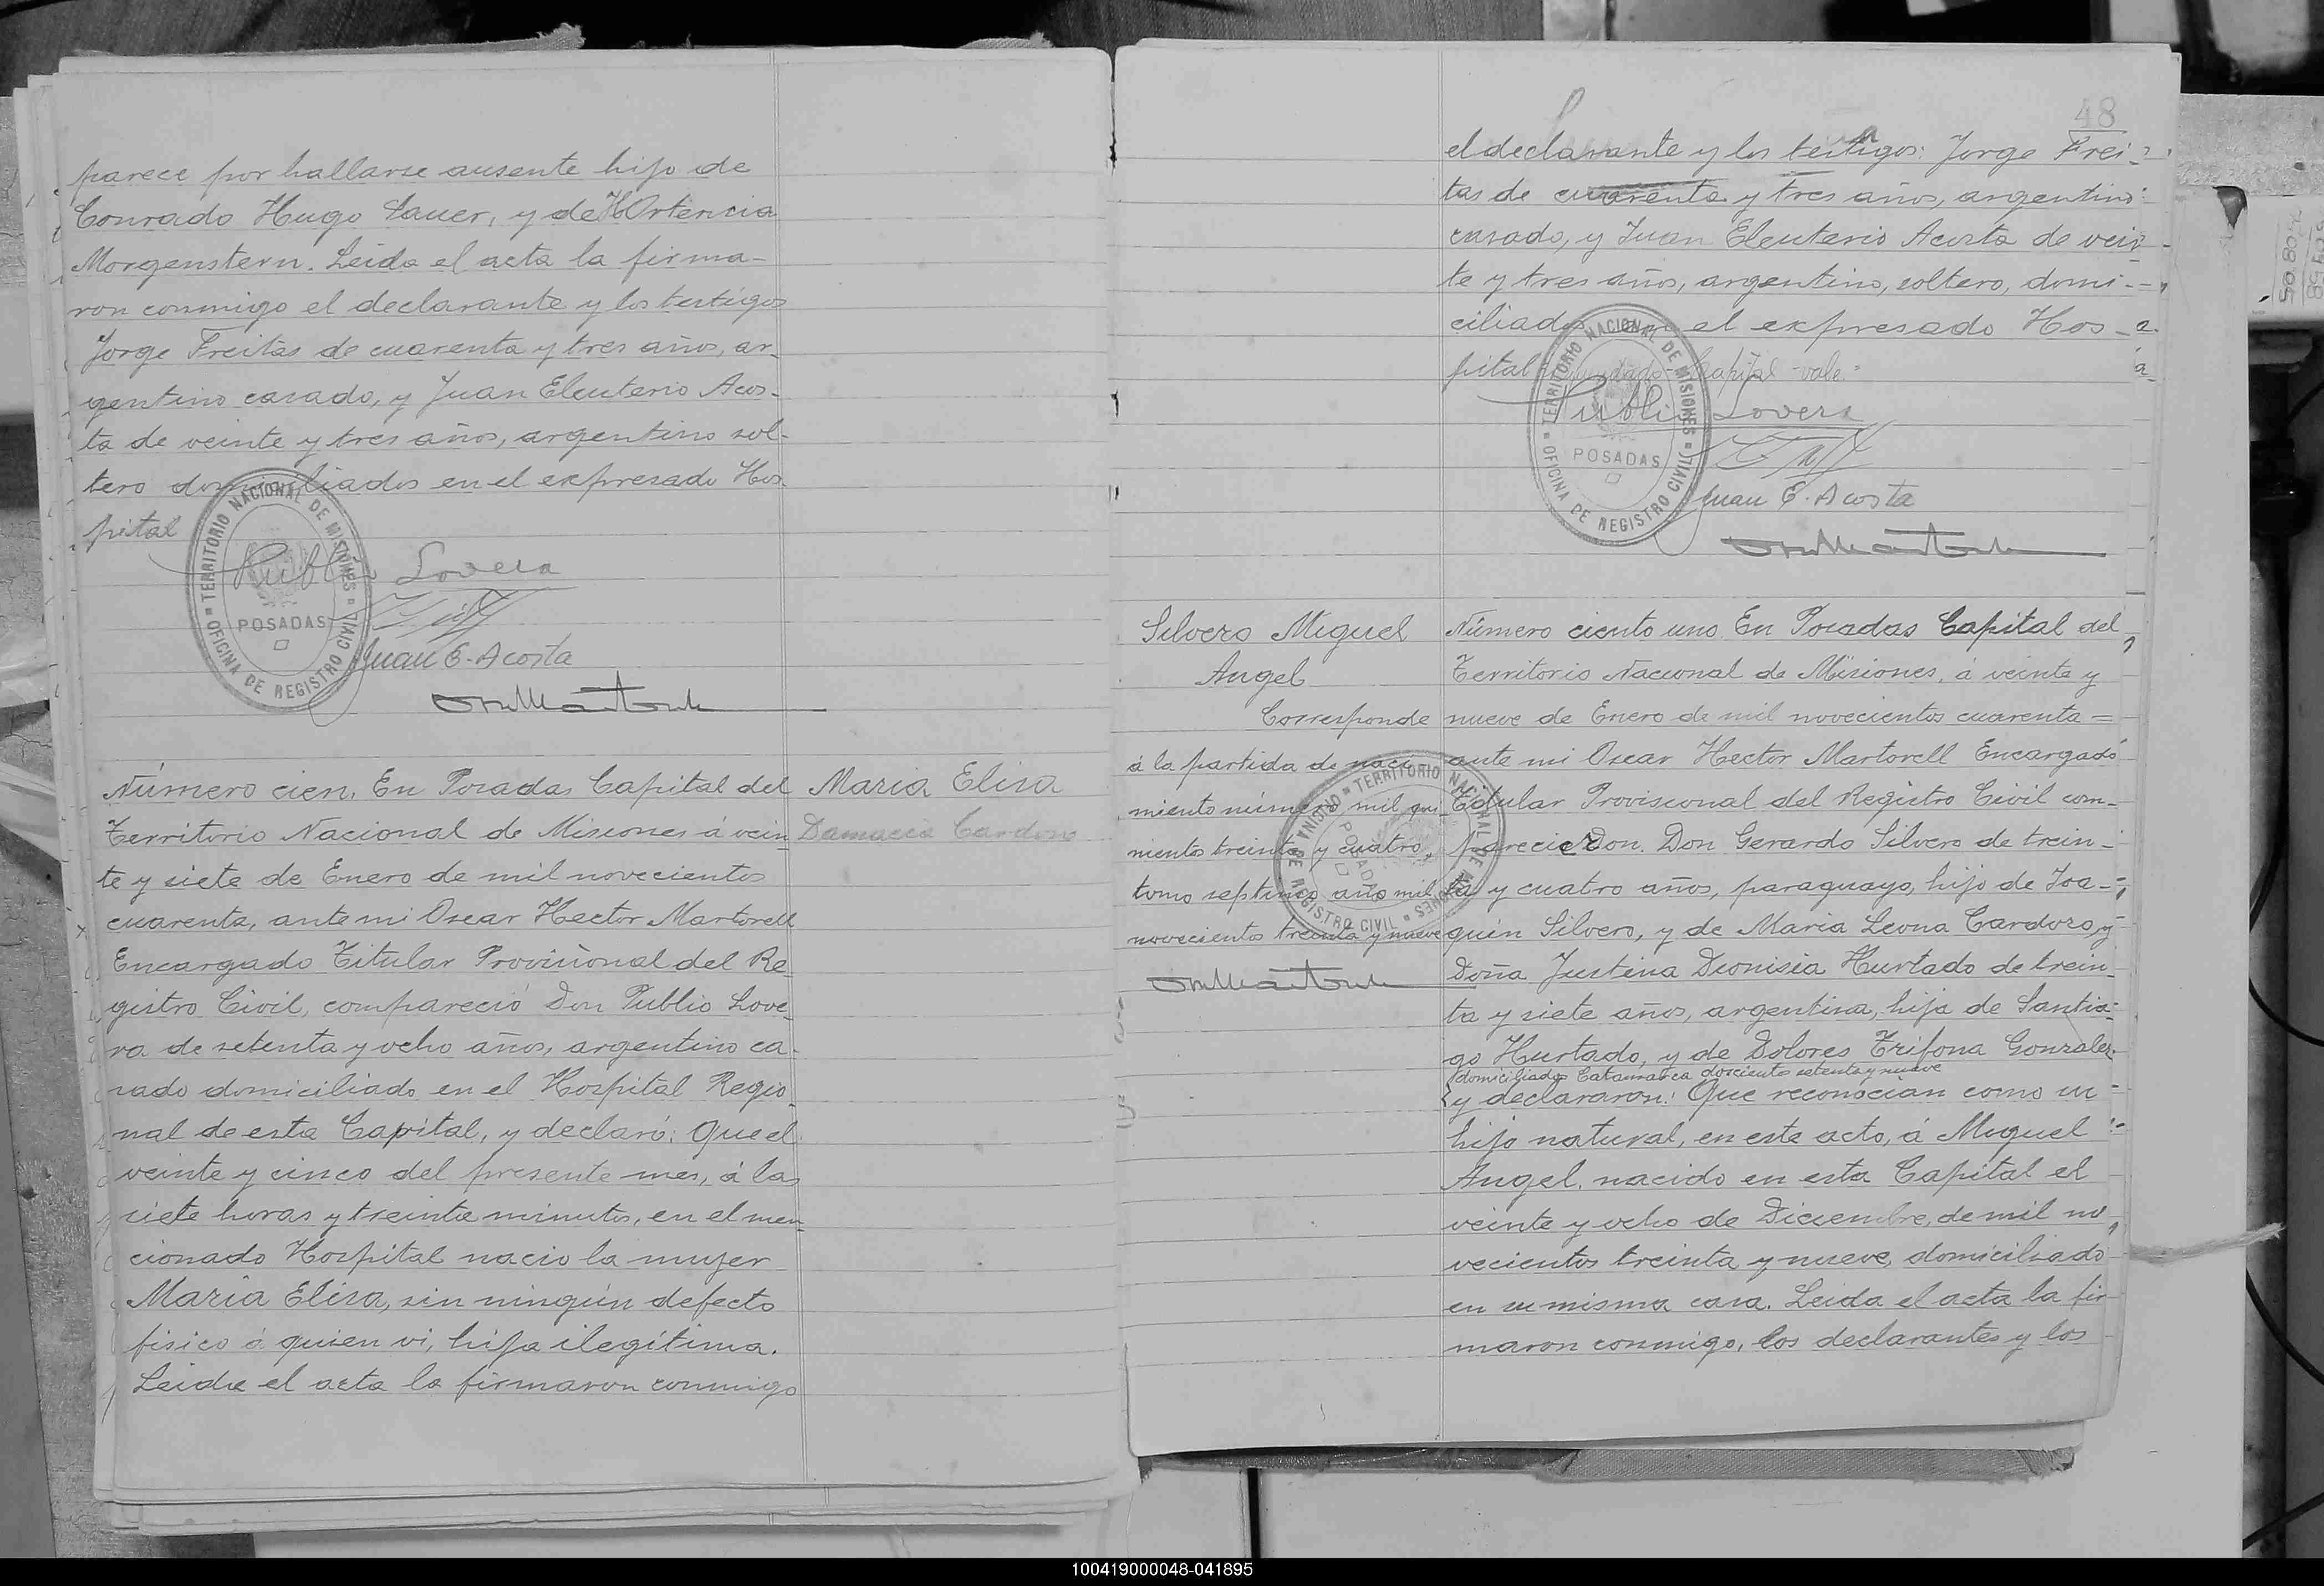 parece por hallarse ausente hijo de
Conrado Hugo Sauer, y de HOrtencia
Morgenstern. Leida el acta la firma-
ron conmigo el declarante y los testigos
Jorge Freitas de cuarenta y tres años, ar-
gentino casado, y Juan Eleuterio Acos-
ta de veinte y tres años, argentino sol-
tero domiciliados en el expresado Hos-
pital
Publio Lovera
Juan E. Acosta
TERRITORIO NACIONAL DE MISIONES
POSADAS
OFICINA DE REGISTRO CIVIL
Número cien. En Posadas Capital del
Territorio Nacional de Misiones á vein
te y siete de Enero de mil novecientos
cuarenta, ante mi Oscar Hector Martorell
Encargado Titular Provisional del Re-
gistro Civil, compareció Don Publio Love-
ra de setenta y ocho años, argentino ca-
sado domiciliado en el Hospital Regio-
nal de esta Capital, y declaró: Que el
veinte y cinco del presente mes, á las
siete horas y treinta minutos, en el men-
cionado Hospital nacio la mujer
Maria Elisa, sin ningún defecto
fisico á quien vi, hija ilegítima.
Leida el acta la firmaron conmigo
Maria Elisa
Damacia Cardozo
48
el declarante y los testigos: Jorge Frei-
tas de cuarenta y tres años, argentino
casado, y Juan Eleuterio Acosta de vein-
te y tres años, argentino, soltero, domi-
ciliados en el expresado Hos-
pital Capital - vale =
Publio Lovera
Juan E. Acosta
TERRITORIO NACIONAL DE MISIONES
POSADAS
OFICINA DE REGISTRO CIVIL
Silvero Miguel
Angel
Corresponde
á la partida de naci-
miento número mil qui-
nientos treinta y cuatro,
tomo septimo año mil
novecientos treinta y nueve
TERRITORIO NACIONAL DE MISIONES
POSADAS
OFICINA DE REGISTRO CIVIL
Número ciento uno. En Posadas Capital del
Territorio Nacional de Misiones, á veinte y
nueve de Enero de mil novecientos cuarenta =
ante mi Oscar Hector Martorell Encargado
Titular Provisional del Registro Civil com-
parecieron. Don Gerardo Silvero de trein-
ta y cuatro años, paraguayo, hijo de Joa-
quin Silvero, y de Maria Leona Cardozo, y
Doña Justina Dionisia Hurtado de trein-
ta y siete años, argentina, hija de Santia-
go Hurtado, y de Dolores Trifona Gonzalez.
domiciliados Catamarca doscientos setenta y nueve
y declararon: Que reconocian como su
hijo natural, en este acto, á Miguel
Angel, nacido en esta Capital el
veinte y ocho de Diciembre, de mil no
vecientos treinta y nueve, domiciliado
en su misma casa. Leida el acta la fir
maron conmigo, los declarantes y los
100419000048-041895